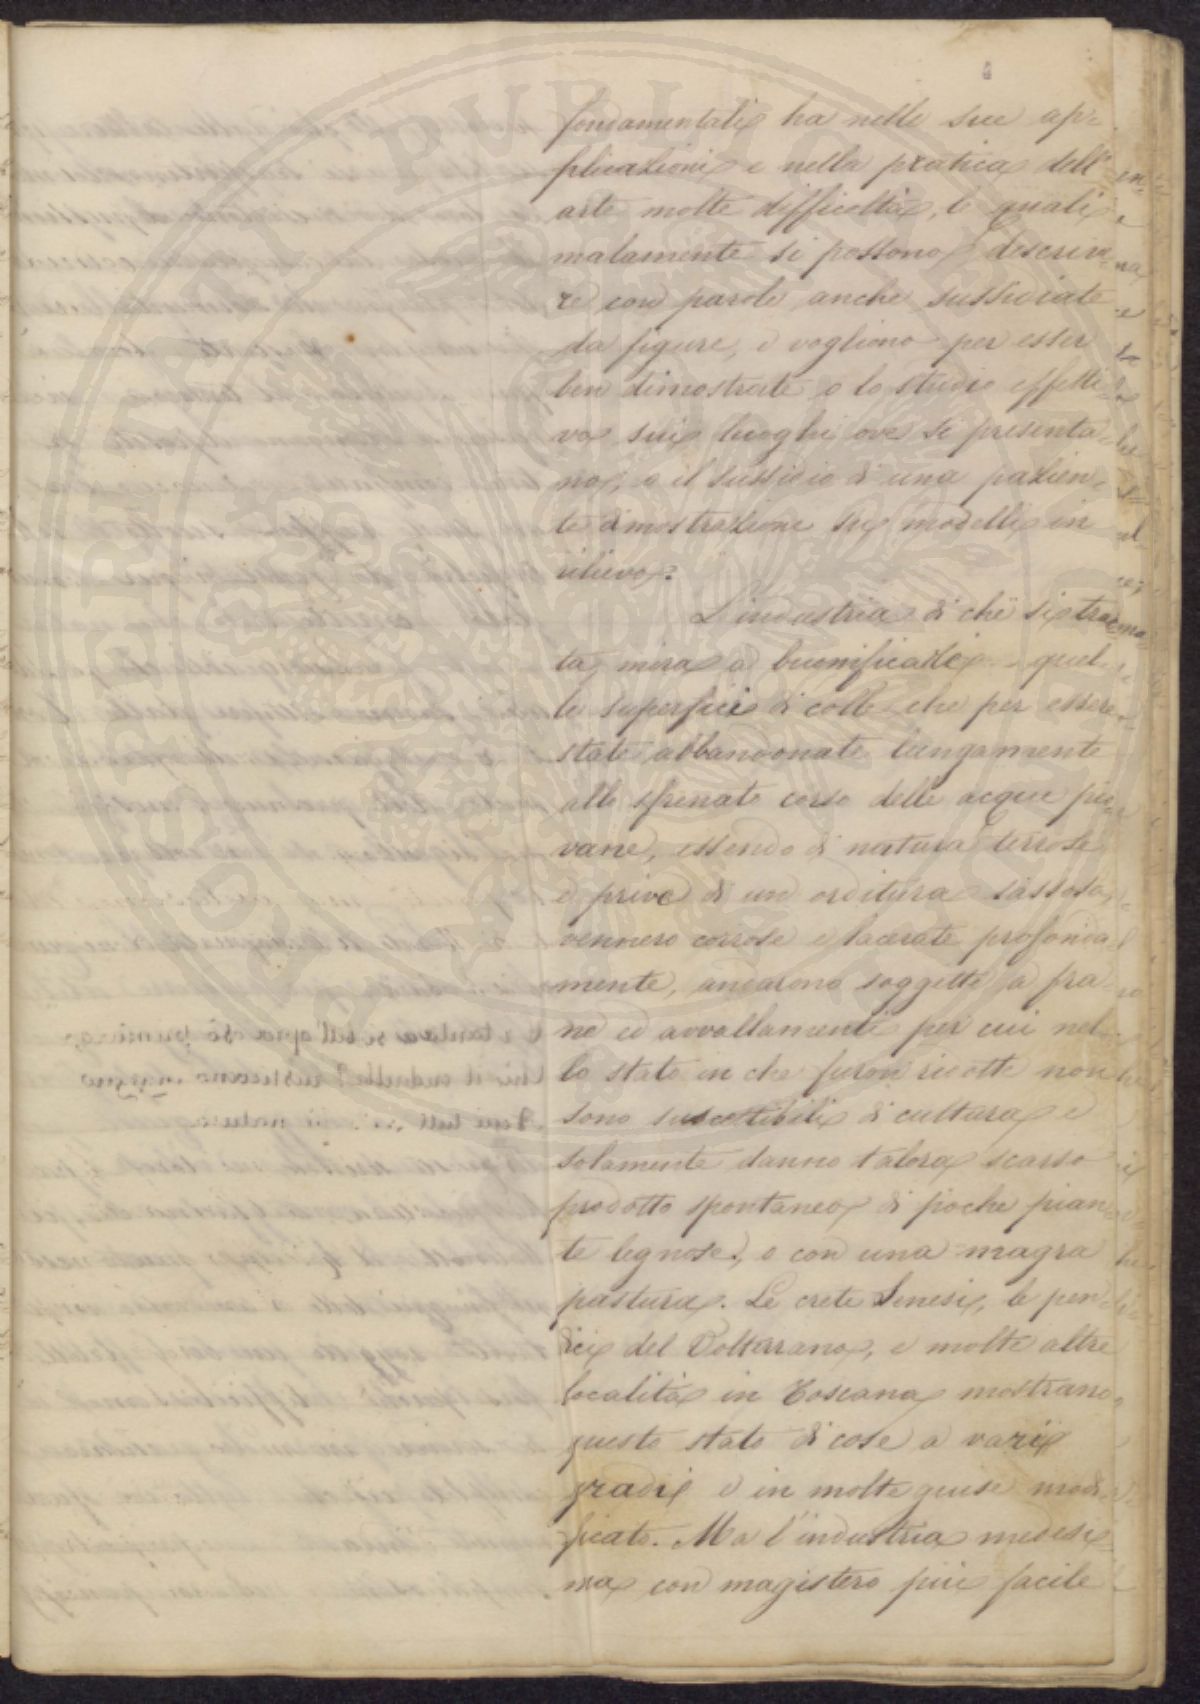 fondamentali ha nelle sue ap-
plicazioni e nella pratica dell'
arte molte difficoltà, le quali
malamente si possono descrive-
re con parole anche sussidiate
da figure, e vogliono per esser
ben dimostrate o lo studio effetti-
vo sui luoghi ove si presenta-
no, o il sussidio di una pazien-
te dimostrazione su modelli in
rilievo.
L'industria di che si trat-
ta mira a buonificare quel-
le superfici di colle che per essere
state abbandonate lungamente
allo sfrenato corso delle acque pio-
vane, essendo di natura terrose
e prive di un orditura sassosa,
vennero corrose e lacerate profonda-
mente, andarono soggette a fra-
ne ed avvallamenti per cui nel-
lo stato in che furon ridotte non
sono suscettibili di cultura e
solamente danno talora scarso
prodotto spontaneo di poche pian-
te legnose, o con una magra
pastura. Le crete Senesi, le pen-
dici del Volterrano, e molte altre
località in Toscana mostrano
questo stato di cose a varii
gradi e in molte guise modi-
ficato. Ma l'industria medesi-
ma con magistero più facile